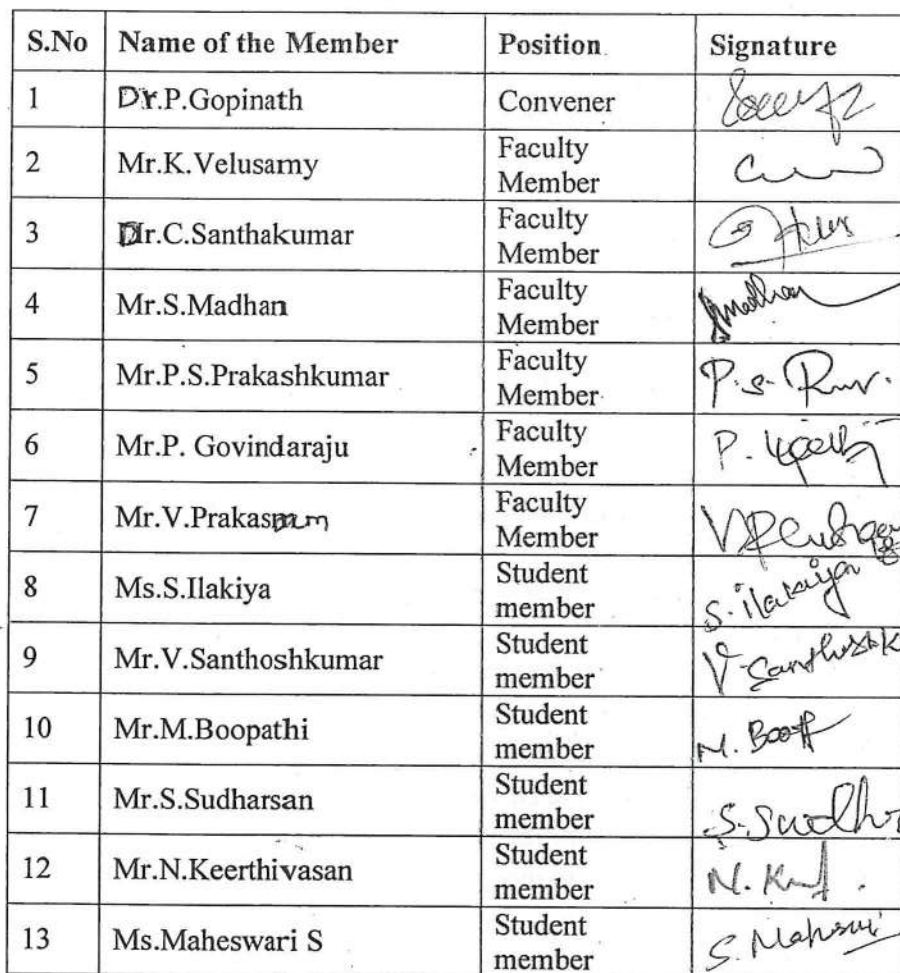 S.No Name of the Member Position Signature
1 Dr.P.Gopinath Convener
2 Mr.K.Velusamy Faculty Member
3 Dr.C.Santhakumar Faculty Member
4 Mr.S.Madhan Faculty Member Smadhan
5 Mr.P.S.Prakashkumar Faculty Member P.S.
6 Mr.P. Govindaraju Faculty Member P.
7 Mr.V.Prakasam Faculty Member
8 Ms.S.Ilakiya Student member S. ilakiya
9 Mr.V.Santhoshkumar Student member V. SanthoshK
10 Mr.M.Boopathi Student member M. Boop
11 Mr.S.Sudharsan Student member S. Sudhr
12 Mr.N.Keerthivasan Student member N.
13 Ms.Maheswari S Student member S.